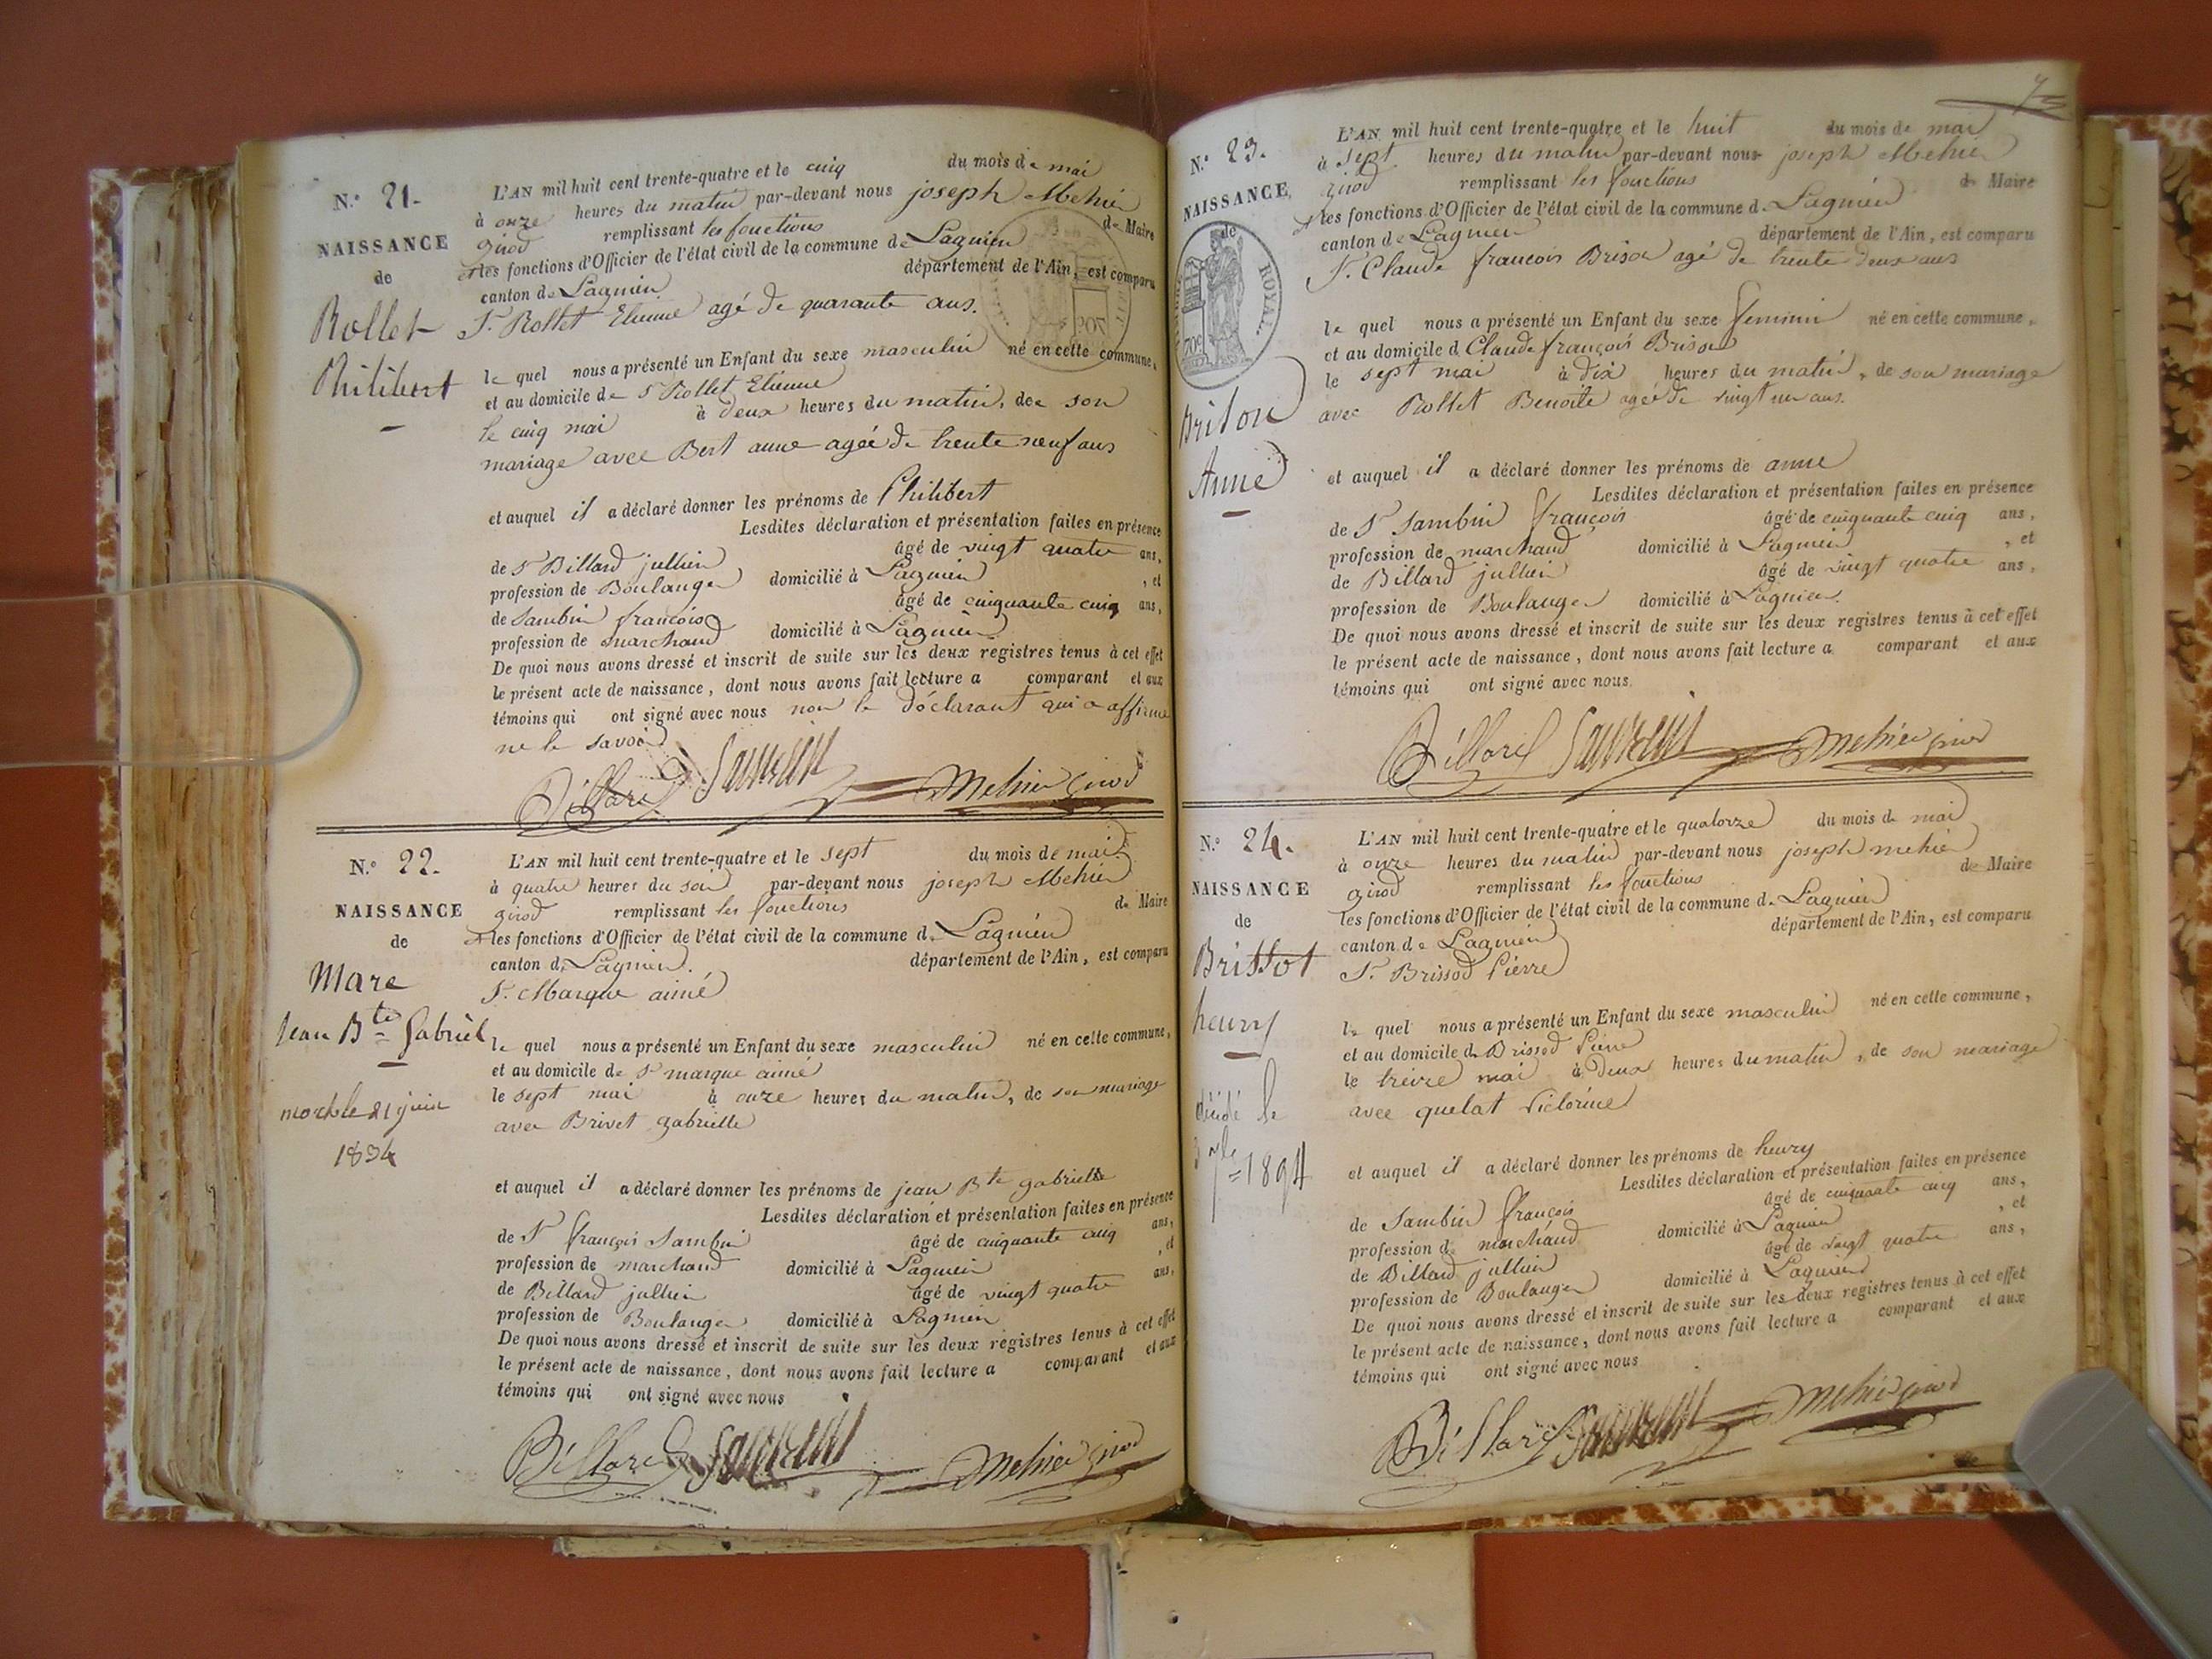 N.° 21.
NAISSANCE
de
Rollet
Philibert
L'AN mil huit cent trente-quatre et le cinq du mois de mai
à onze heures du matin par-devant nous joseph Mehier
girod remplissant les fonctions de Maire
et les fonctions d'Officier de l'état civil de la commune de Lagnieu
canton de Lagnieu département de l'Ain, est comparu
Sr. Rollet Etienne agé de quarante ans.
le quel nous a présenté un Enfant du sexe masculin né en cette commune,
et au domicile de Sr Rollet Etienne
le cinq mai à deux heures du matin, de son
mariage avec Bert anne agée de trente neuf ans
et auquel il a déclaré donner les prénoms de Philibert
Lesdites déclaration et présentation faites en présence
de Sr Billard jullien âgé de vingt quatre ans,
profession de Boulanger domicilié à Lagnieu , et
de Sambin francois âgé de cinquante cinq ans,
profession de marchand domicilié à Lagnieu
De quoi nous avons dressé et inscrit de suite sur les deux registres tenus à cet effet
le présent acte de naissance, dont nous avons fait lecture a comparant et aux
témoins qui ont signé avec nous non le déclarant qui a affirmé
ne le savoir
Billard Sambin Mehier girod
N.° 22.
NAISSANCE
de
Marc
Jean Bte Gabriel
mort le 21 juin
1834
L'AN mil huit cent trente-quatre et le sept du mois de mai
à quatre heures du soir par-devant nous joseph Mehier
girod remplissant les fonctions de Maire
et les fonctions d'Officier de l'état civil de la commune d. Lagnieu
canton d. Lagnieu. département de l'Ain, est comparu
Sr. Marque aimé
le quel nous a présenté un Enfant du sexe masculin né en cette commune,
et au domicile de Sr marque aimé
le sept mai à onze heures du matin, de son mariage
avec Brivet gabrielle
et auquel il a déclaré donner les prénoms de jean Bte gabrielle
Lesdites déclaration et présentation faites en présence
de Sr françois Sambin âgé de cinquante cinq ans,
profession de marchand domicilié à Lagnieu , et
de Billard jullien âgé de vingt quatre ans,
profession de Boulanger domicilié à Lagnieu
De quoi nous avons dressé et inscrit de suite sur les deux registres tenus à cet effet
le présent acte de naissance, dont nous avons fait lecture a comparant et aux
témoins qui ont signé avec nous
Billard Sambin Mehier girod
7
N.° 23.
NAISSANCE
de
ROYAL.
70c
Brison
Anne
L'AN mil huit cent trente-quatre et le huit du mois de mai
à sept heures du matin par-devant nous joseph Mehier
girod remplissant les fonctions de Maire
et les fonctions d'Officier de l'état civil de la commune d. Lagnieu
canton de Lagnieu département de l'Ain, est comparu
Sr. Claude francois Brison agé de trente deux ans
le quel nous a présenté un Enfant du sexe feminin né en cette commune,
et au domicile d Claude françois Brison
le sept mai à dix heures du matin, de son mariage
avec Rollet Benoite agée de vingt un ans.
et auquel il a déclaré donner les prénoms de anne
Lesdites déclaration et présentation faites en présence
de Sr Sambin françois âgé de cinquante cinq ans,
profession de marchand domicilié à Lagnieu , et
de Billard jullien âgé de vingt quatre ans,
profession de Boulanger domicilié à Lagnieu.
De quoi nous avons dressé et inscrit de suite sur les deux registres tenus à cet effet
le présent acte de naissance, dont nous avons fait lecture a comparant et aux
témoins qui ont signé avec nous.
Billard Sambin Mehier girod
N.° 24.
NAISSANCE
de
Brissot
henry
décédé le
3 7bre 1894
L'AN mil huit cent trente-quatre et le quatorze du mois de mai
à onze heures du matin par-devant nous joseph mehier
girod remplissant les fonctions de Maire
les fonctions d'Officier de l'état civil de la commune d. Lagnieu
canton de Lagnieu département de l'Ain, est comparu
Sr. Brissod Pierre
le quel nous a présenté un Enfant du sexe masculin né en cette commune,
et au domicile de Brissod Pierre
le treize mai à deux heures du matin, de son mariage
avec quelat victorine
et auquel il a déclaré donner les prénoms de henry
Lesdites déclaration et présentation faites en présence
de Sambin françois âgé de cinquante cinq ans,
profession de marchand domicilié à Lagnieu , et
de Billard jullien âgé de vingt quatre ans,
profession de Boulanger domicilié à Lagnieu
De quoi nous avons dressé et inscrit de suite sur les deux registres tenus à cet effet
le présent acte de naissance, dont nous avons fait lecture a comparant et aux
témoins qui ont signé avec nous
Billard Sambin Mehier girod